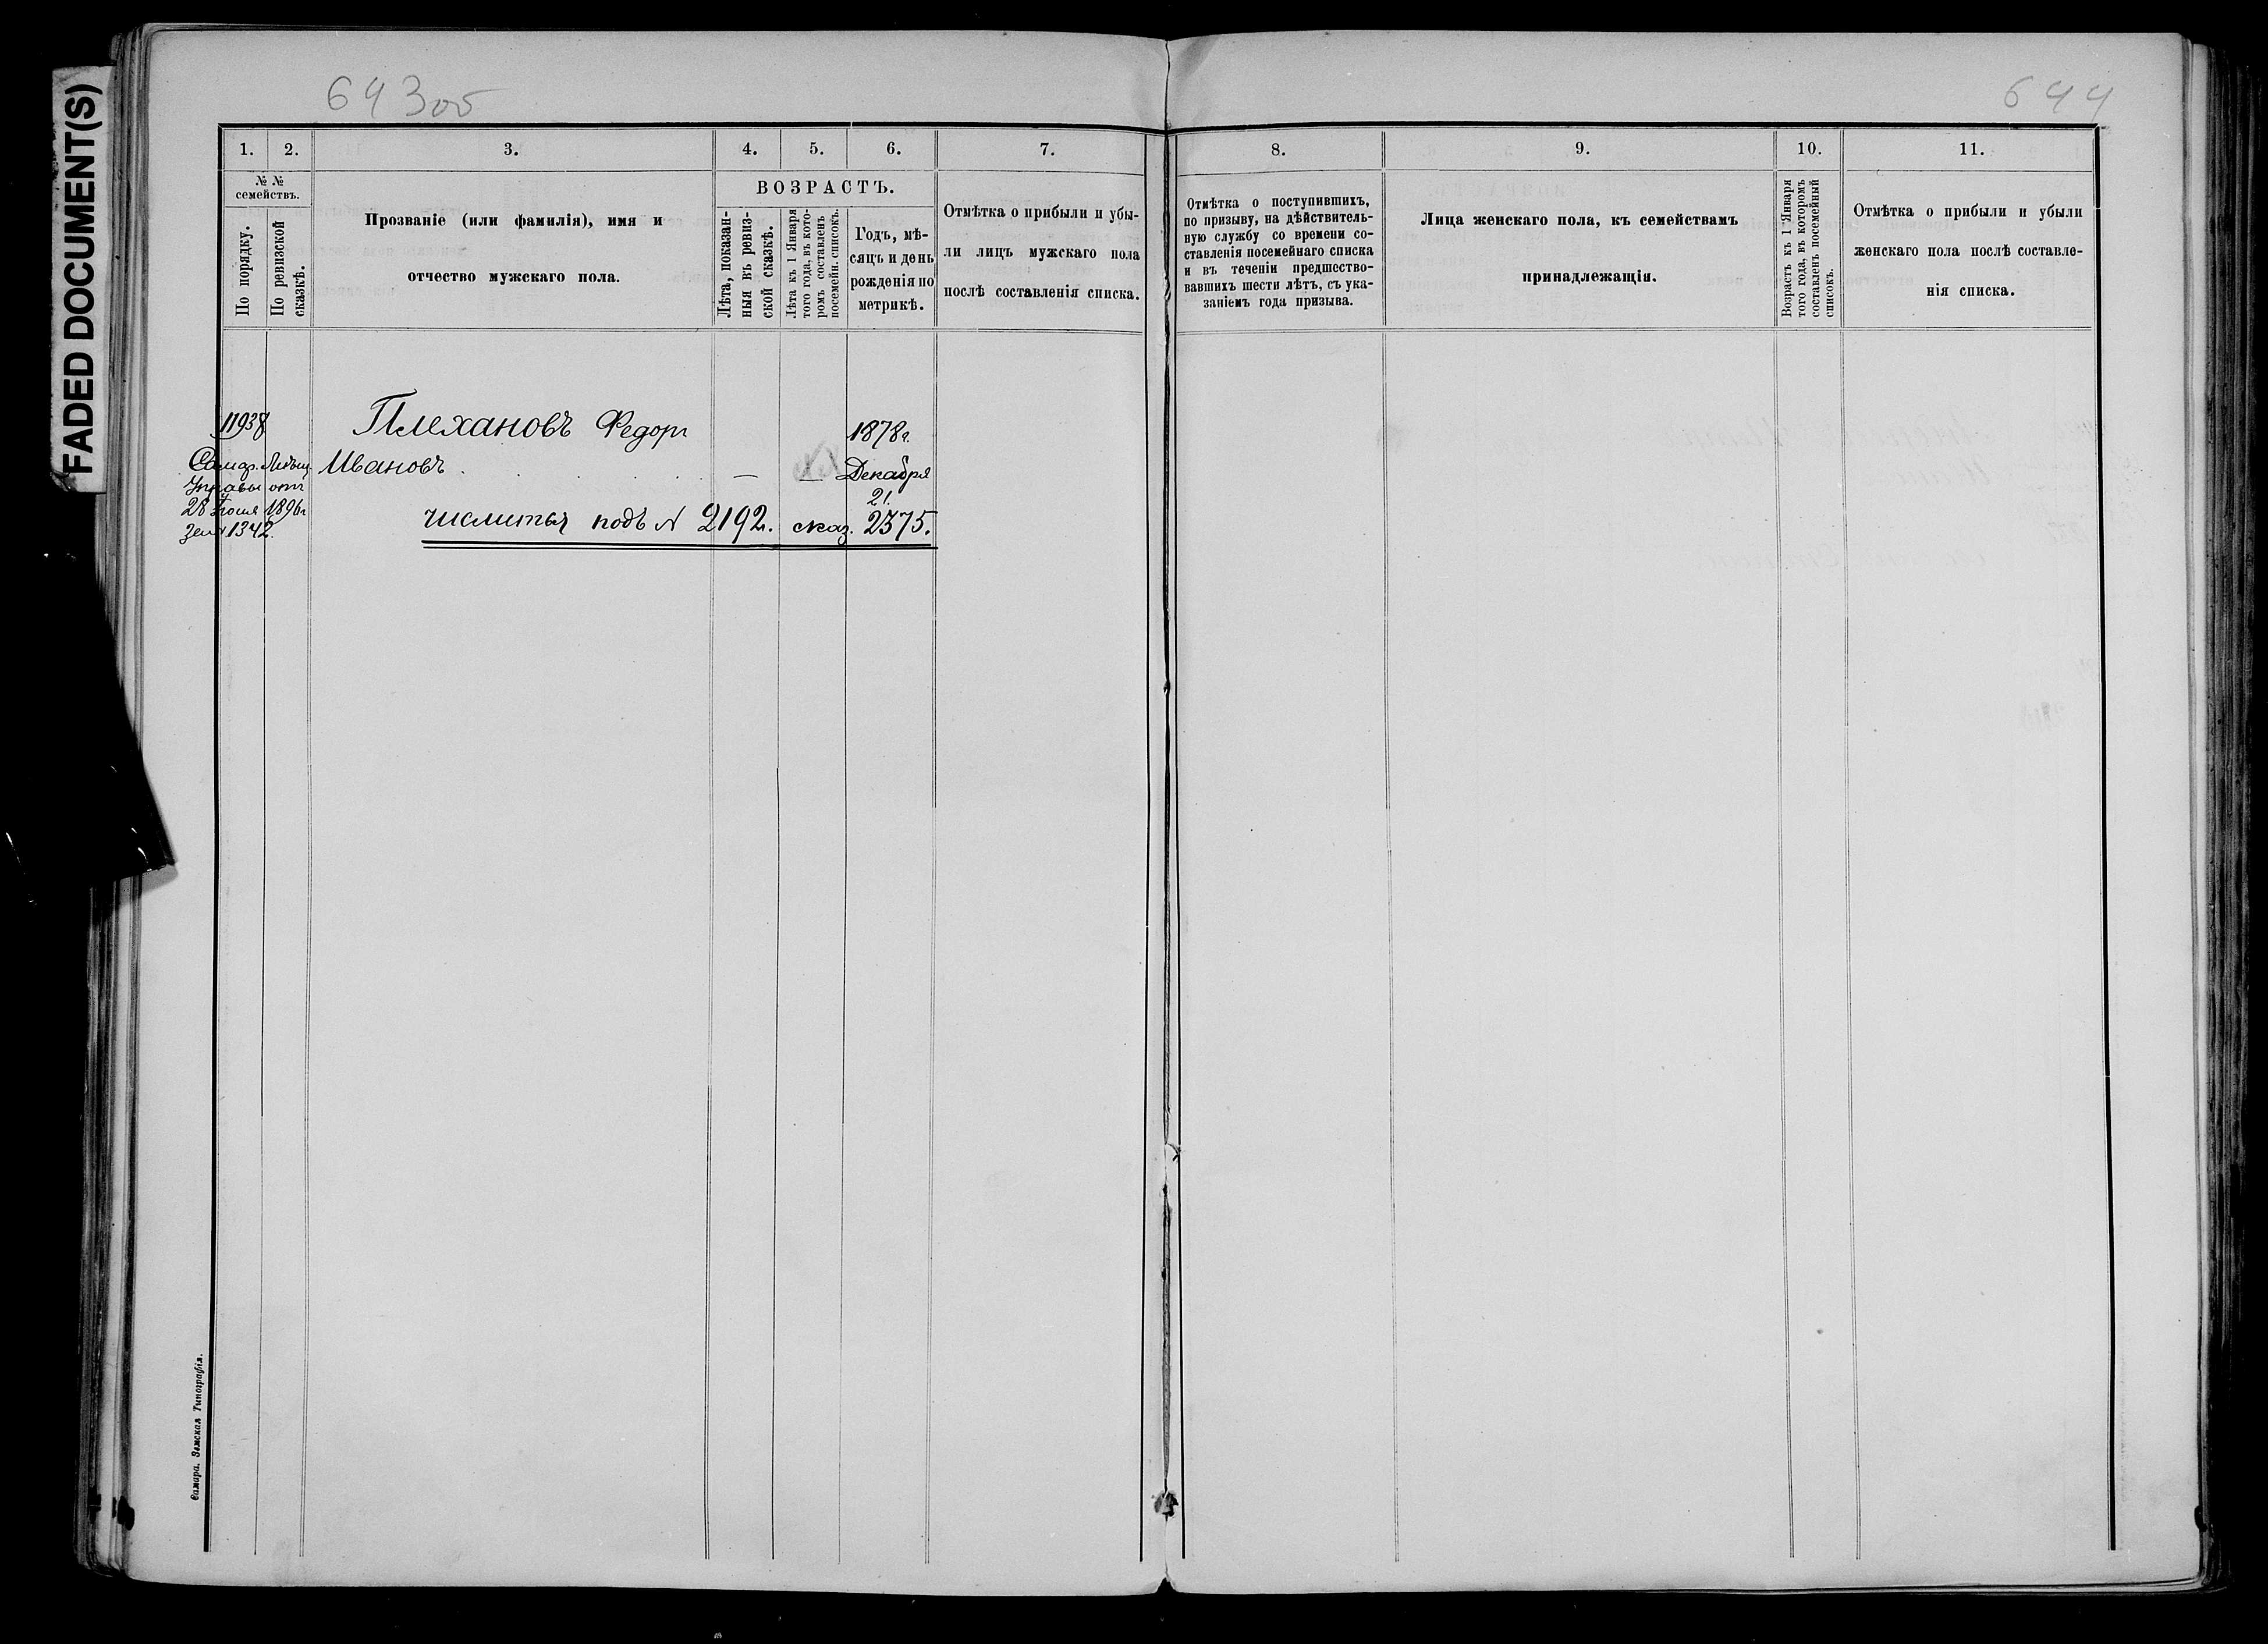 FADED DOCUMENT(S)
643об
644
1. 2. 3. 4. 5. 6. 7.
№ №
семействъ.
По порядку.
По ревизской
сказкѣ.
Прозваніе (или фамилія), имя и
отчество мужскаго пола.
ВОЗРАСТЪ.
Лѣта, показан-
ныя въ ревиз-
ской сказкѣ.
Лѣта къ 1 Января
того года, въ кото-
ромъ составленъ
посемейн. списокъ.
Годъ, мѣ-
сяцъ и день
рожденія по
метрикѣ.
Отмѣтка о прибыли и убы-
ли лицъ мужскаго пола
послѣ составленія списка.
8. 9. 10. 11.
Отмѣтка о поступившихъ,
по призыву, на дѣйствитель-
ную службу со времени со-
ставленія посемейнаго списка
и въ теченіи предшество-
вавшихъ шести лѣтъ, съ ука-
заніемъ года призыва.
Лица женскаго пола, къ семействамъ
принадлежащія.
Возрастъ къ 1 Января
того года, въ которомъ
составленъ посемейный
списокъ.
Отмѣтка о прибыли и убыли
женскаго пола послѣ составле-
нія списка.
11938 Плехановъ Федоръ 1878г.
Ивановъ — — Декабря
Управы отъ 21.
28 1896г
1342.
числится подъ № 2192. сказ. 2375.
Самара. Земская Типографія.